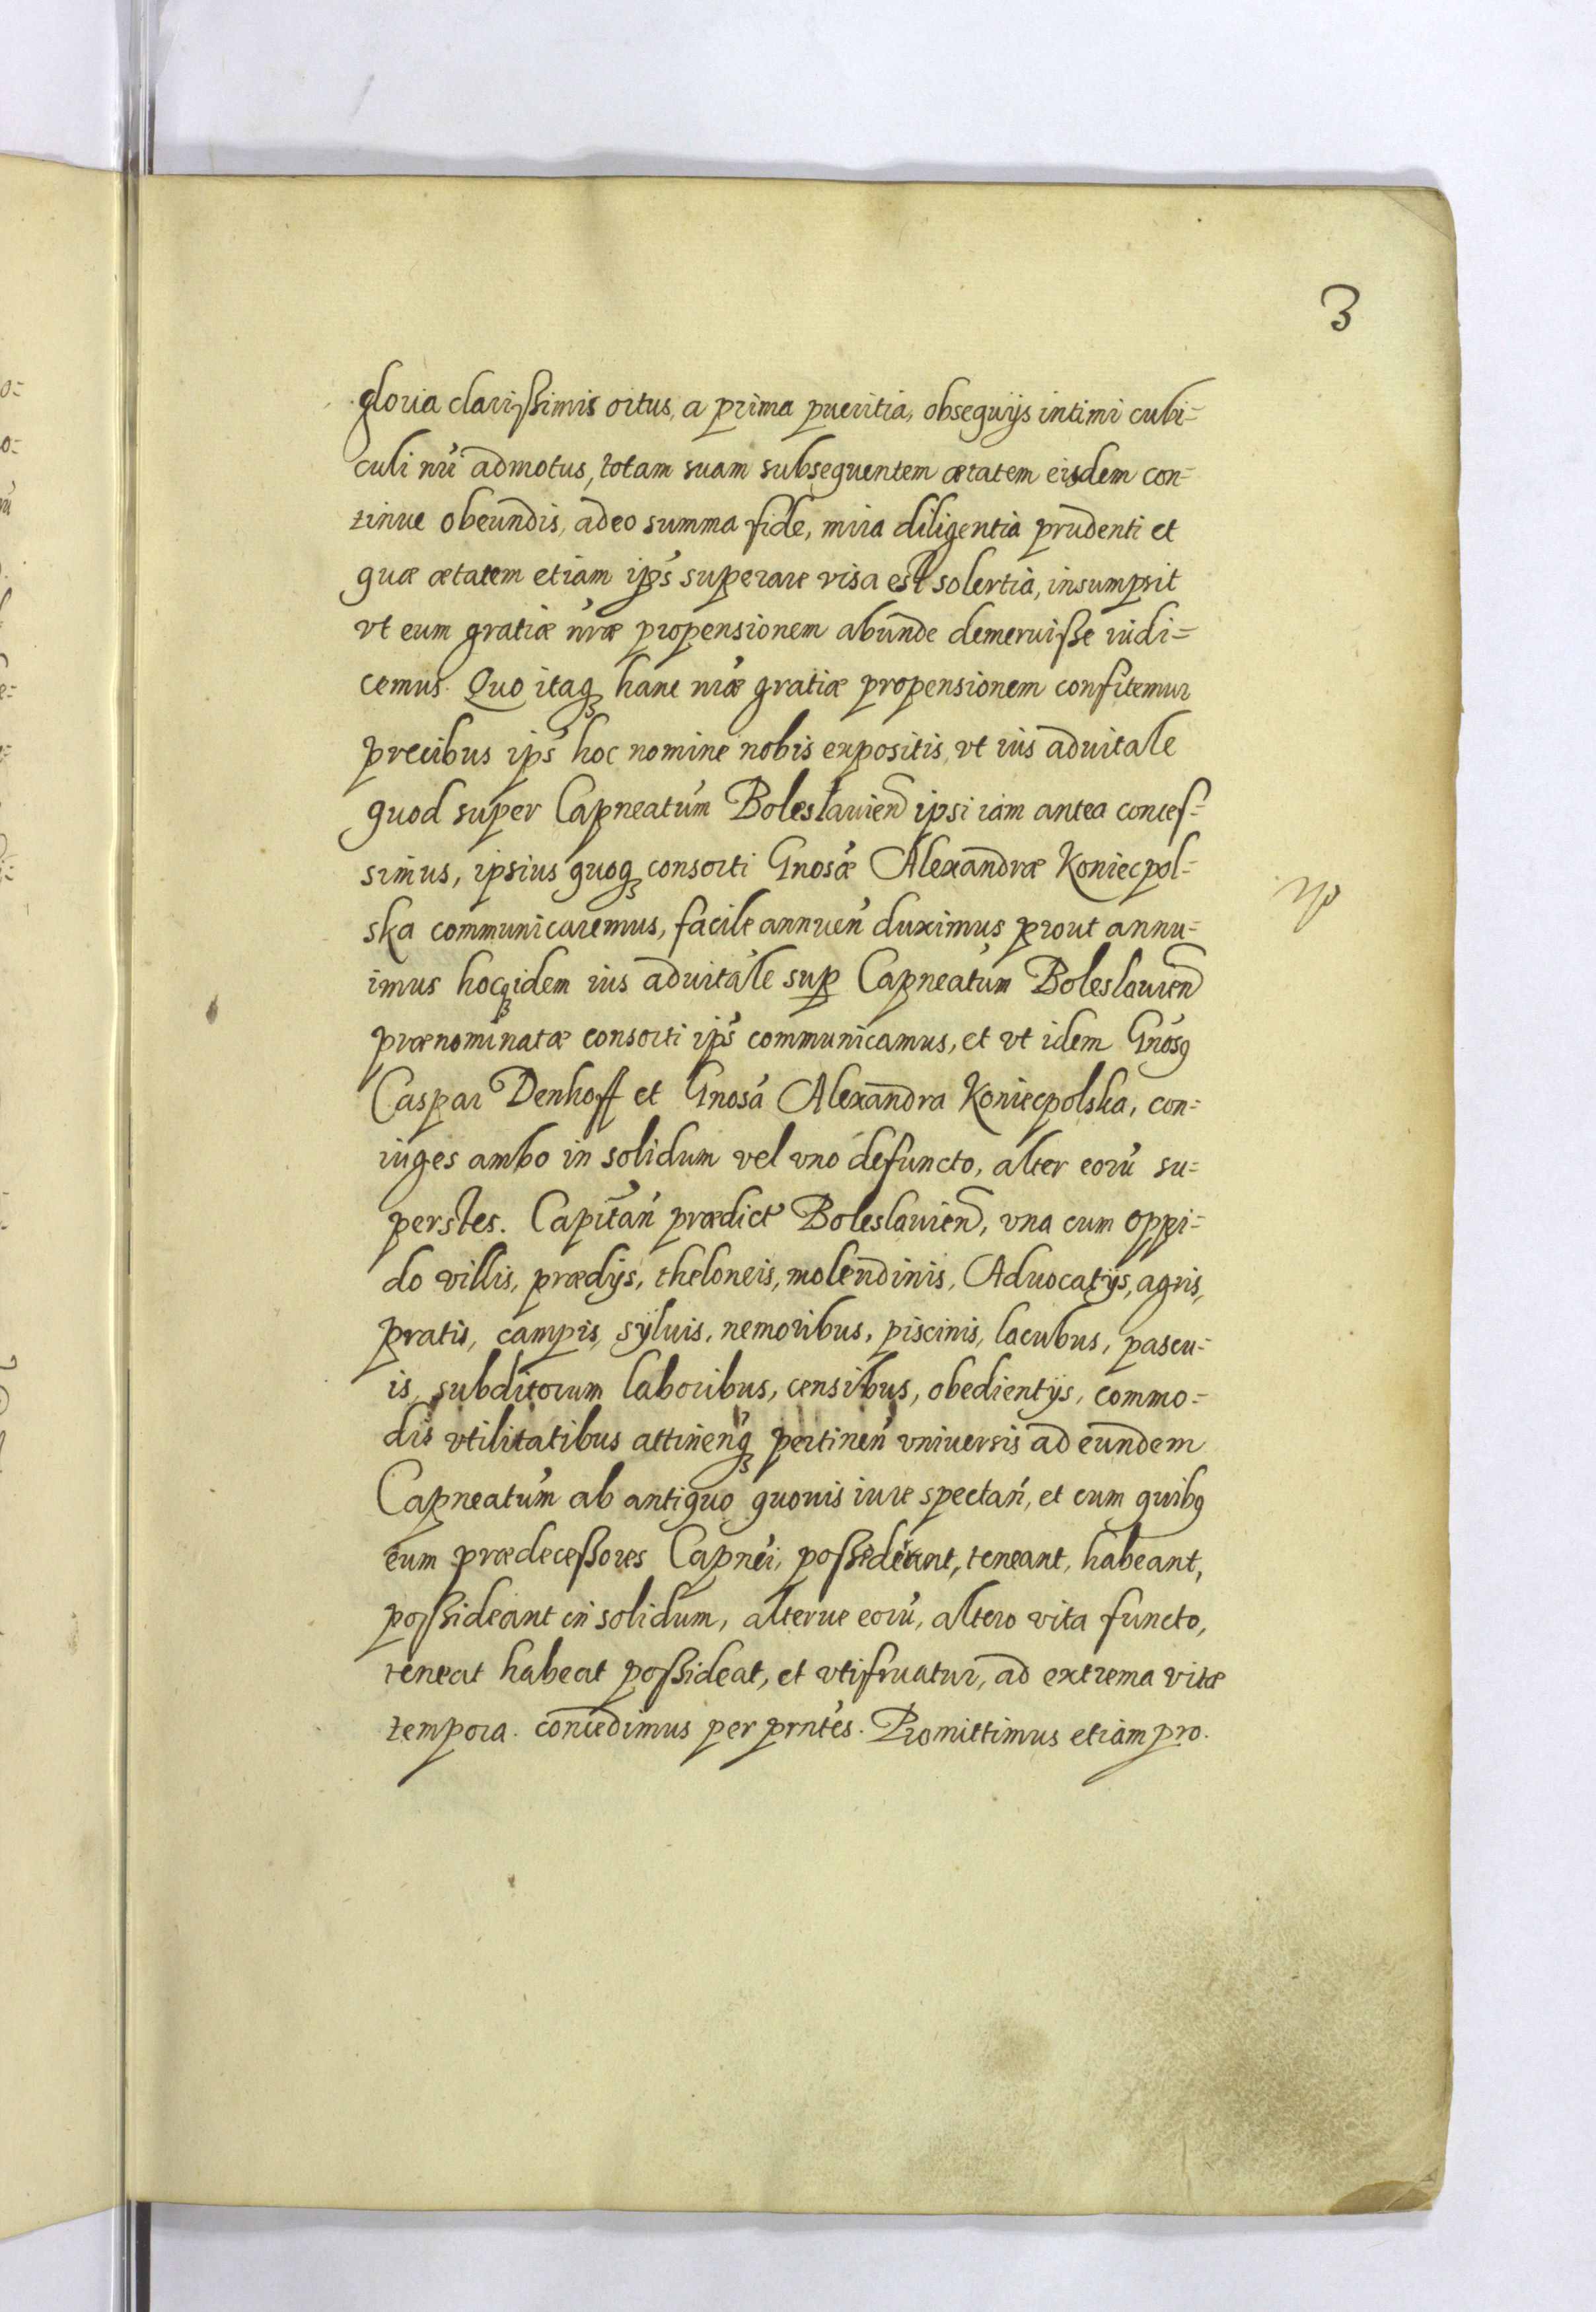 3
gloria clarissimis ortus, a prima pueritia, obsequijs intimi cubi=
culi nri admotus, totam suam subsequentem ætatem eisdem con=
tinue obeundis, adeo summa fide, mira diligentia prudenti et
quæ ætatem etiam ips superare visa est solertia, insumpsit
vt eum gratiæ nræ propensionem abunde demeruisse iudi=
cemus. Quo itaq hanc nræ gratiæ propensionem confitemur
precibus ips hoc nomine nobis expositis, vt ius aduitale
quod super Capneatum Boleslauien ipsi iam antea conces=
simus, ipsius quoq consorti Gnosæ Alexandræ Koniecpol=
ska communicaremus, facile annuen duximus prout annu=
imus hocq idem ius aduitale sup Capneatum Boleslauien
prænominatæ consorti ips communicamus, et vt idem Gnosq
Caspar Denhoff et Gnosa Alexandra Koniecpolska, con=
iuges ambo in solidum vel vno defuncto, alter eoru su=
perstes. Capitan prædict Boleslauien, vna cum oppi=
do villis, prædijs, theloneis, molendinis, Aduocatijs, agris,
pratis, campis, syluis, nemoribus, piscinis, lacubus, pascu=
is, subditorum laboribus, censibus, obedientijs, commo=
dis vtilitatibus attinenq pertinen vniuersis ad eundem
Capneatum ab antiquo quouis iure spectan, et cum quibq
eum prædecessores Capnei, possederant, teneant, habeant,
possideant in solidum, alterue eoru, altero vita functo,
teneat habeat possideat, et vtifruatur, ad extrema vitæ
tempora. concedimus per prntes. Promittimus etiam pro.